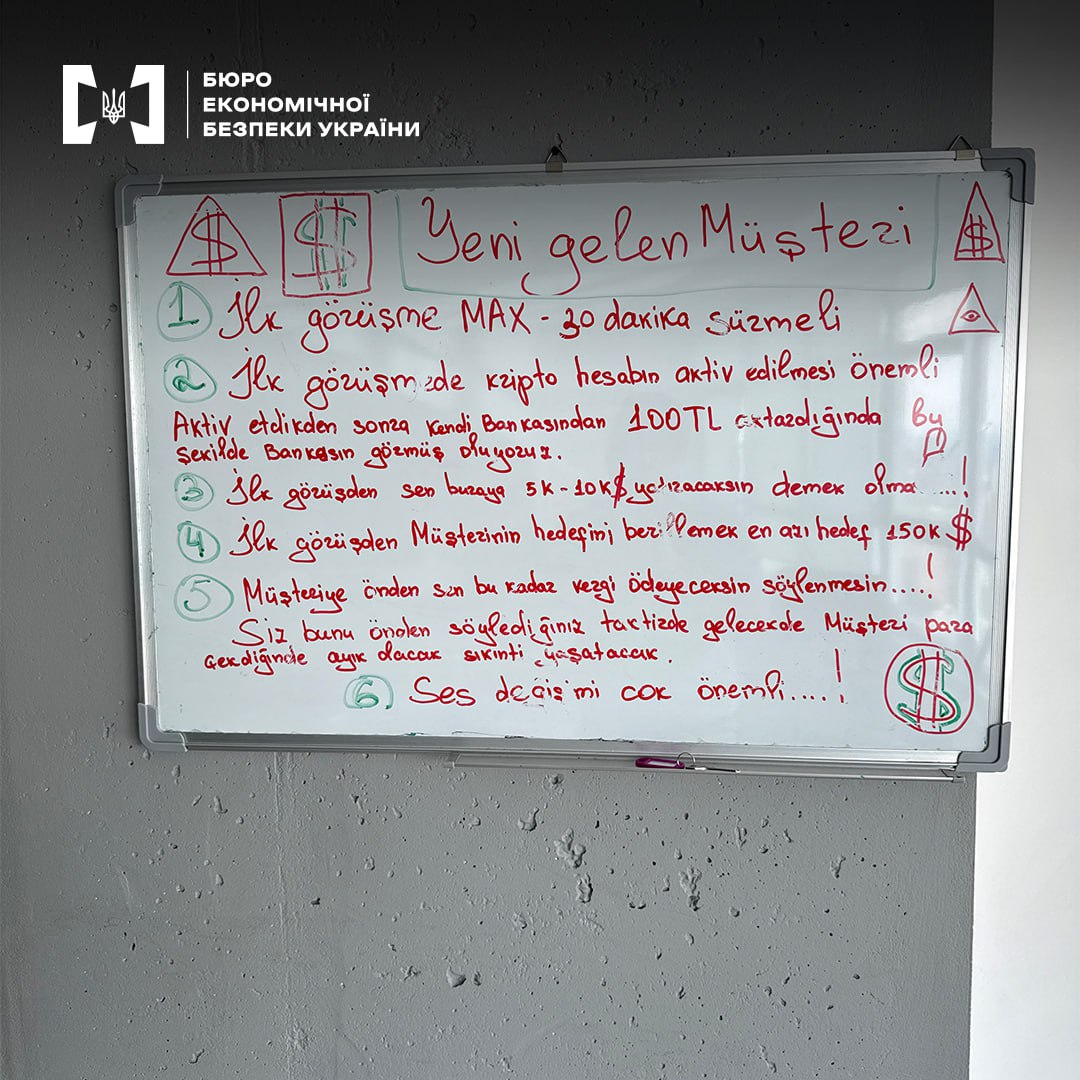 БЮРО
ЕКОНОМІЧНОЇ
БЕЗПЕКИ УКРАЇНИ
$ $ Yeni gelen Müşteri $
1 İlk görüşme MAX - 30 dakika süzmeli
2 İlk görüşmede kripto hesabın aktiv edilmesi önemli
Aktiv etdikden sonra kendi Bankasından 100TL aktardığında bu
şekilde Bankasın görmüş oluyoruz.
3 İlk görüşden sen buraya 5K-10K$ yatıracaksın demek olma.....!
4 İlk görüşden Müşterinin hedefini berillemek en azı hedef 150K $
5 Müşteriye önden sen bu kadar vergi ödeyeceksin söylenmesin....!
Siz bunu önden söylediğiniz taktirde gelecekde Müşteri para
çekdiğinde ayık olacak sıkıntı yaşatacak.
6 Ses değişimi cok önemli....! $